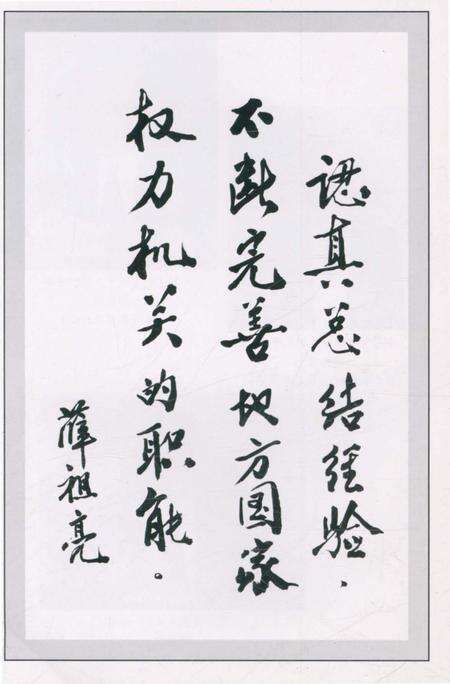 認真总结经验.
不断完善地方国家
权力机关的职能.
薛祖亮